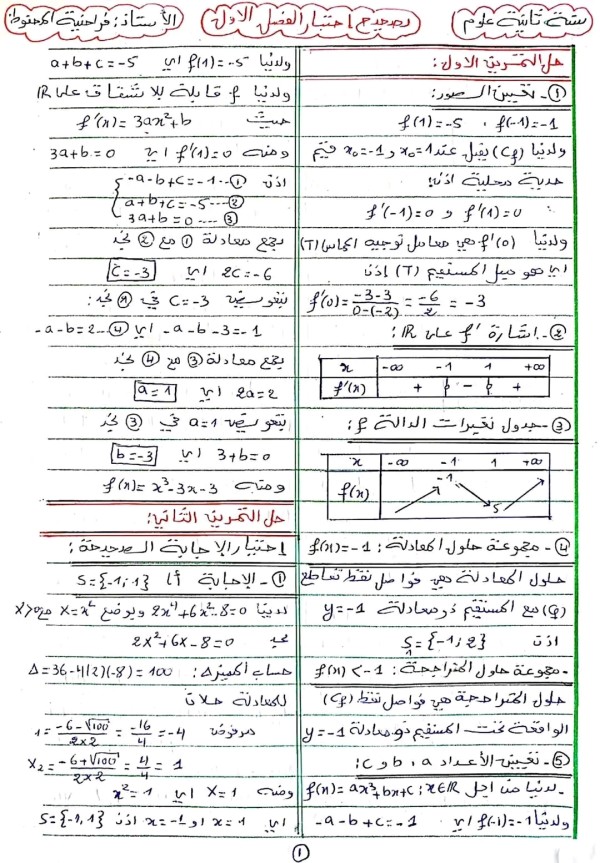 سنة ثانية علوم
تصحيح اختبار الفصل الأول
الأستاذ: فراحتية المحفوظ
حل التمرين الأول:
①- تعيين الصور:
f(1)=-5 ، f(-1)=-1
ولدينا (Cf) يقبل عند x₀=1 و x₀=-1 قيم
حدية محلية اذن:
f'(-1)=0 و f'(1)=0
ولدينا f'(0) هي معامل توجيه المماس (T)
اي هو ميل المستقيم (T) إذن
f'(0)= -3-3 / 0-(-2) = -6/2 = -3
②- اشارة f' على IR:
x -∞ -1 1 +∞
f'(x) + 0 - 0 +
③- جدول تغيرات الدالة f:
x -∞ -1 1 +∞
f(x) -1 -5
④- مجموعة حلول المعادلة: f(x)=-1
حلول المعادلة هي فواصل نقط تقاطع
(Cf) مع المستقيم ذو معادلة y=-1
اذن S={-1;2}
- مجموعة حلول المتراجحة: f(x)<-1
حلول المتراجحة هي فواصل نقط (Cf)
الواقعة تحت المستقيم ذو معادلة y=-1
⑤- تعيين الأعداد a ، b و c:
- لدينا من اجل f(x)=ax³+bx+c ; x∈IR
ولدينا f(-1)=-1 اي -a-b+c=-1
ولدينا f(1)=-5 اي a+b+c=-5
ولدينا f قابلة للاشتقاق على IR
حيث f'(x)=3ax²+b
ومنه f'(1)=0 اي 3a+b=0
اذن -a-b+c=-1 ---①
a+b+c=-5 ---②
3a+b=0 ---③
بجمع معادلة ① مع ② نجد
2c=-6 اي c=-3
بتعويض c=-3 في ① نجد:
-a-b-3=-1 اي -a-b=2 --④
بجمع معادلة ③ مع ④ نجد
2a=2 اي a=1
بتعويض a=1 في ③ نجد
3+b=0 اي b=-3
ومنه f(x)=x³-3x-3
حل التمرين الثاني:
إختبار الاجابة الصحيحة:
①- الإجابة أ S={-1;1}
لدينا 2x⁴+6x²-8=0 وبوضع X=x² مع X>0
نجد 2X²+6X-8=0
حساب المميز Δ: Δ=36-4(2)(-8)=100
للمعادلة حلان
1= -6-√100 / 2×2 = -16/4 = -4 مرفوض
X₂= -6+√100 / 2×2 = 4/4 = 1
ومنه X=1 اي x²=1
اي x=1 او x=-1 اذن S={-1,1}
①